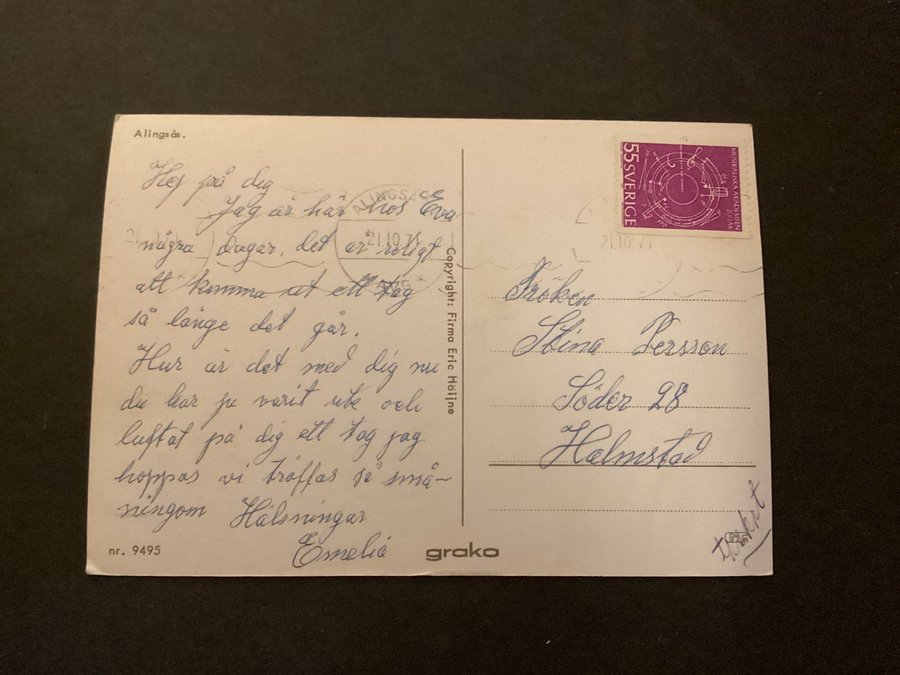 Alingsås.
Hej på dig
Jag är här hos Eva
några dagar. det är roligt
att komma ut ett tag
så länge det går.
Hur är det med dig nu
du har ju varit ute och
luftat på dig ett tag jag
hoppas vi träffas så små-
ningom Hälsningar
Emelia
nr. 9495
Copyright: Firma Eric Höijne
grako
ALINGSÅS
21.10.71
55 SVERIGE
MUSIKALISKA AKADEMIEN
200 ÅR
21.10.71
Fröken
Stina Persson
Söder 28
Halmstad